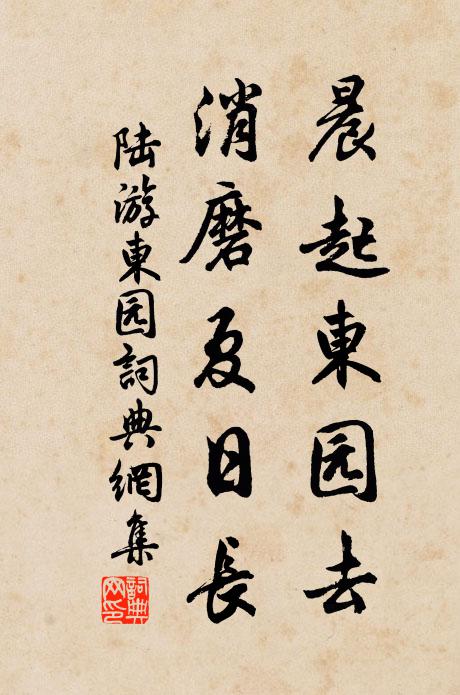 晨起東园去
消磨夏日長
陆游東园詞典網集
詞典网印